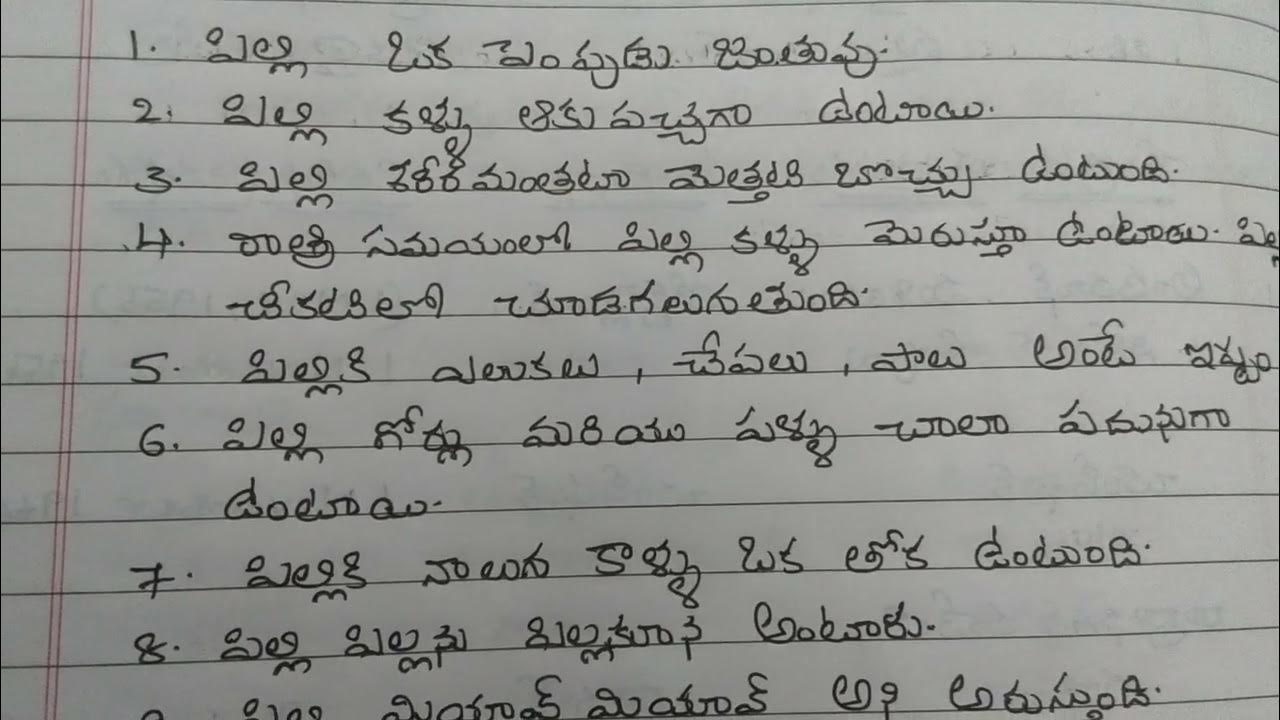 1. పిల్లి ఒక పెంపుడు జంతువు.
2. పిల్లి కళ్ళు ఆకుపచ్చగా ఉంటాయి.
3. పిల్లి శరీరమంతటా మెత్తటి బొచ్చు ఉంటుంది.
4. రాత్రి సమయంలో పిల్లి కళ్ళు మెరుస్తూ ఉంటాయి.
చీకటిలో చూడగలుగుతుంది.
5. పిల్లికి ఎలుకలు, చేపలు, పాలు అంటే ఇష్టం
6. పిల్లి గోర్లు మరియు పళ్ళు చాలా పదునుగా
ఉంటాయి.
7. పిల్లికి నాలుగు కాళ్ళు ఒక తోక ఉంటుంది.
8. పిల్లి పిల్లను పిల్లకూన అంటారు.
పిల్లి మియావ్ మియావ్ అని అరుస్తుంది.